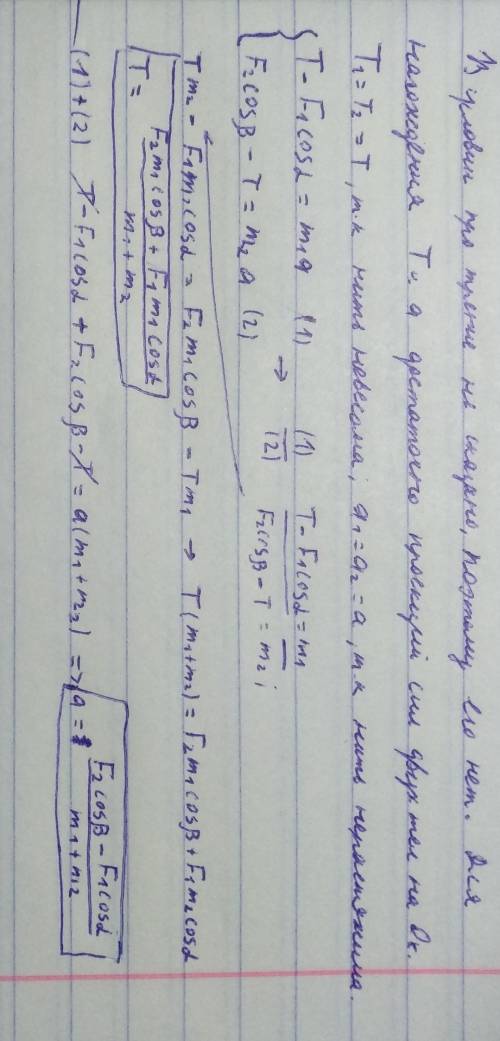 В условии про трение не сказано, поэтому его нет. Для
нахождения T и a достаточно проекций сил двух тел на Ox.
T₁ = T₂ = T, т.к нить невесома; a₁ = a₂ = a, т.к нить нерастяжима.
{ T - F₁cosα = m₁a (1) → (1)/(2) (T - F₁cosα)/(F₂cosβ - T) = m₁/m₂ ;
F₂cosβ - T = m₂a (2)
Tm₂ - F₁m₂cosα = F₂m₁cosβ - Tm₁ → T(m₁+m₂) = F₂m₁cosβ + F₁m₂cosα
T = (F₂m₁cosβ + F₁m₁cosα)/(m₁+m₂)
(1)+(2) T - F₁cosα + F₂cosβ - T = a(m₁+m₂) => a = (F₂cosβ - F₁cosα)/(m₁+m₂)